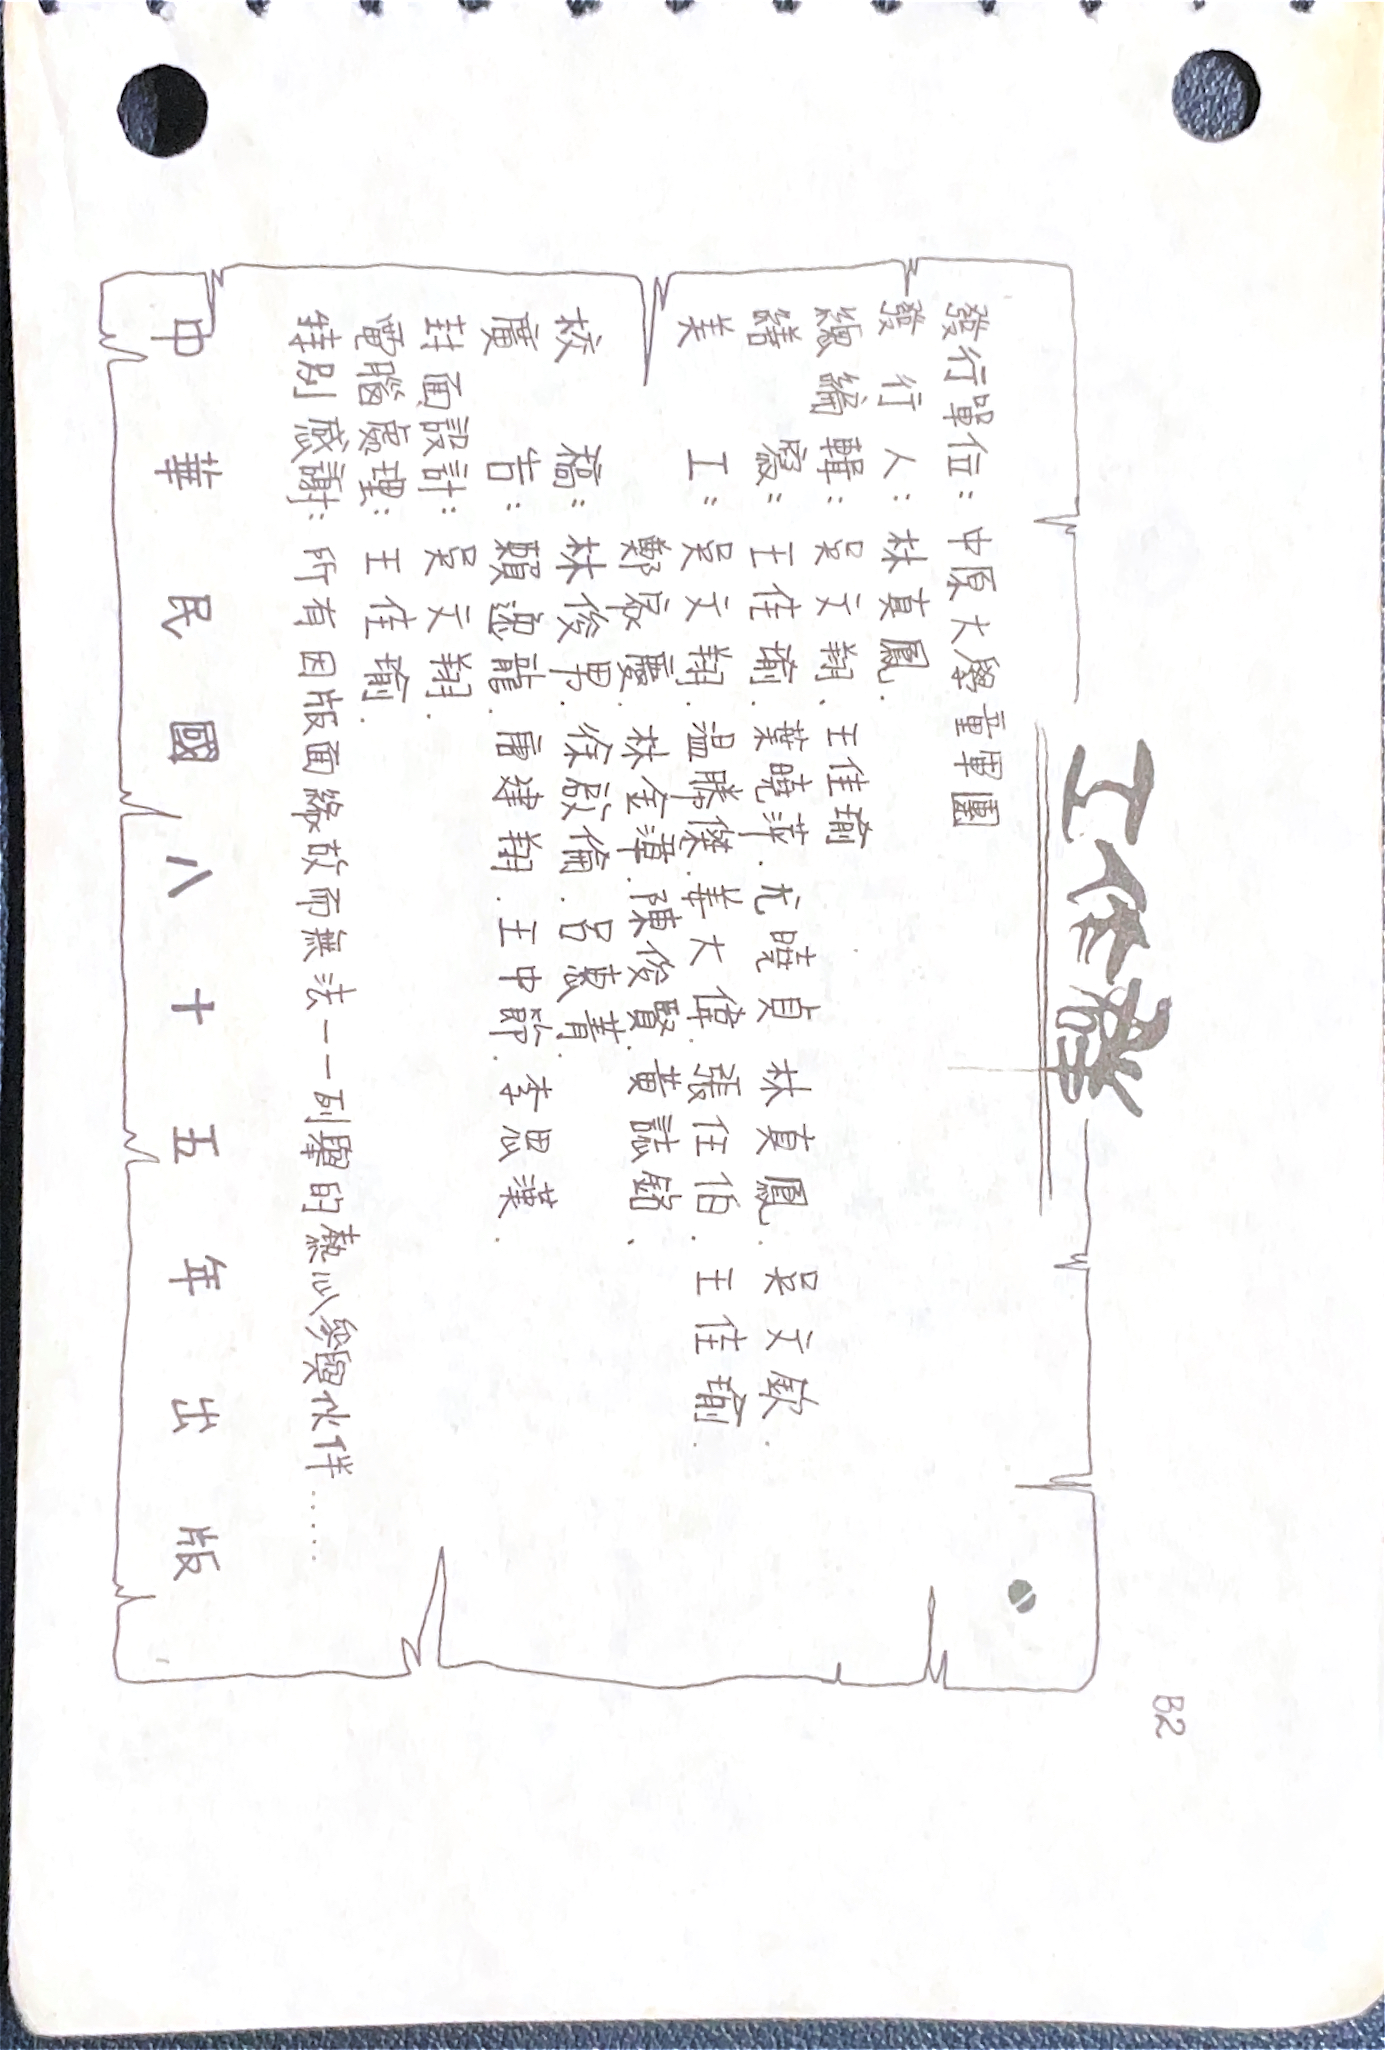 B2
工作群
發行單位：中原大學童軍團
發行人：林真鳳.
總編輯：吳文翔、王佳瑜
繕寫：王佳瑜.葉曉萍.尤曉貞 林真鳳.吳文欽.
美工：吳文翔.温勝傑.姜大偉.張任伯.王佳瑜.
鄭家慶.林金潭.陳俊賢.黃誌銘、
校稿：林俊男.徐啟倫.呂惠菁.
廣告：賴逸龍.唐建翔.王中節.李思漢.
封面設計：吳文翔.
電腦處理：王佳瑜.
特別感謝：所有因版面緣故而無法一一列舉的熱心參與伙伴.....
中華民國八十五年出版